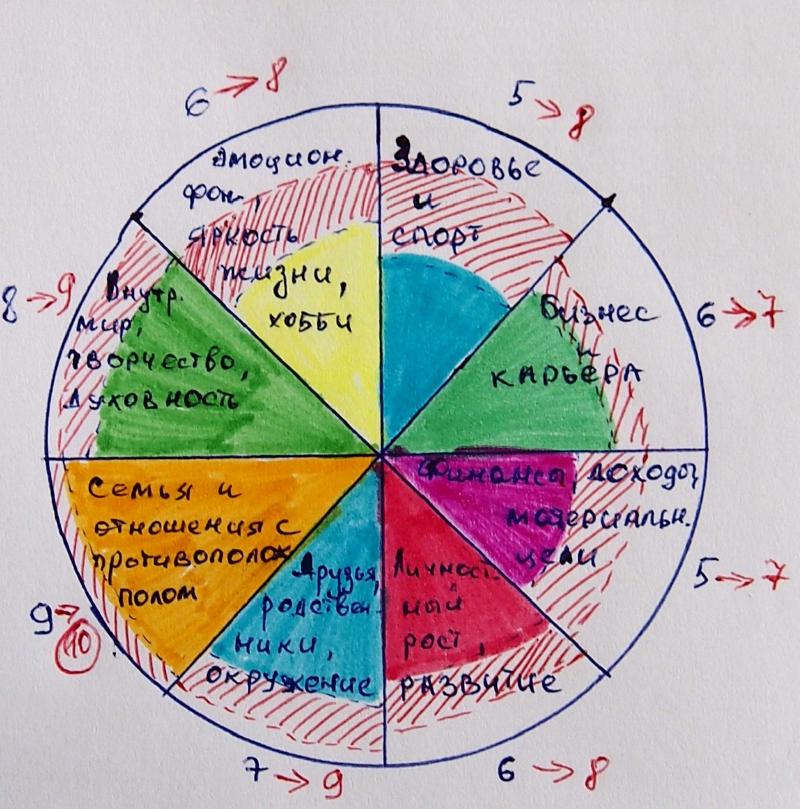 6 → 8
5 → 8
Эмоцион.
фон,
яркость
жизни,
хобби
Здоровье
и
спорт
6 → 7
Бизнес
и
карьера
5 → 7
Финансы, доходы,
материальн.
цели
6 → 8
Личност-
ный
рост,
развитие
7 → 9
Друзья,
родствен-
ники,
окружение
9 →
10
Семья и
отношения с
противополож
полом
8 → 9
Внутр.
мир,
творчество,
духовность